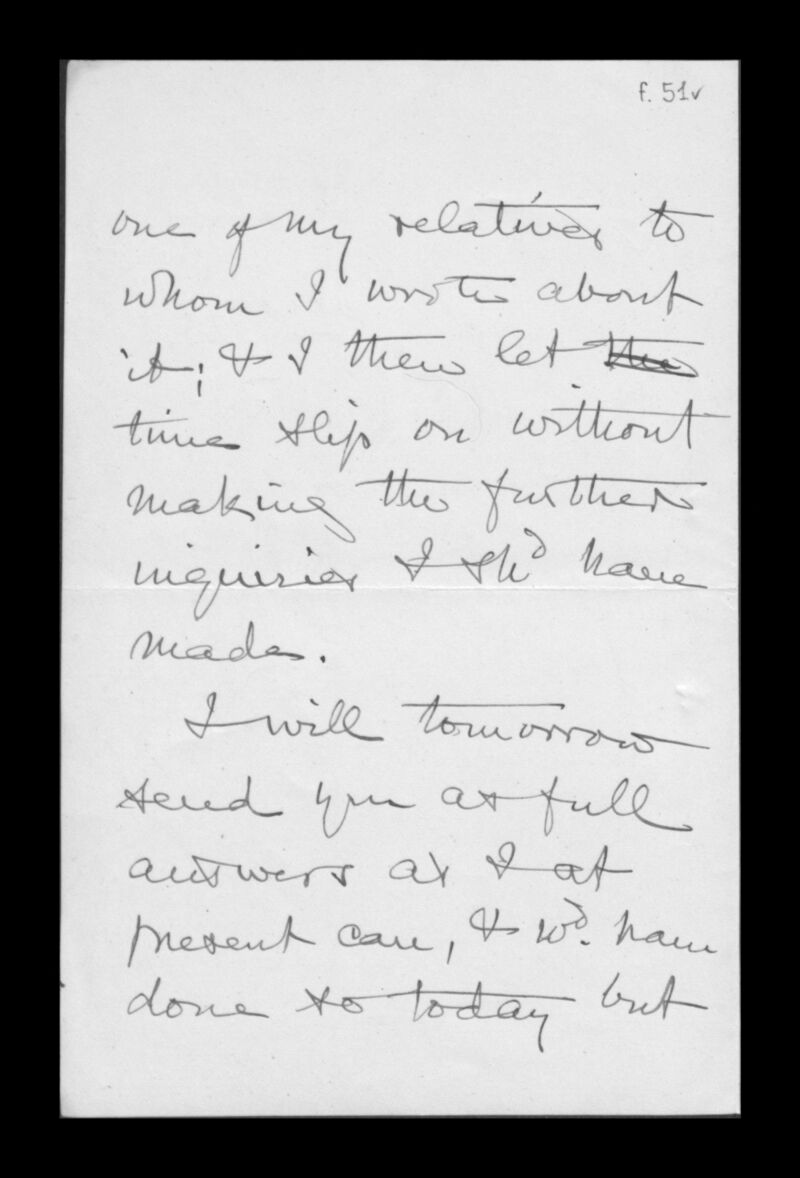 f. 51v
one of my relatives to
whom I wrote about
it; & I then let the
time slip on without
making the further
inquiries I shd have
made.
I will tomorrow
send you as full
answers as I at
present can, & wd. have
done so today but